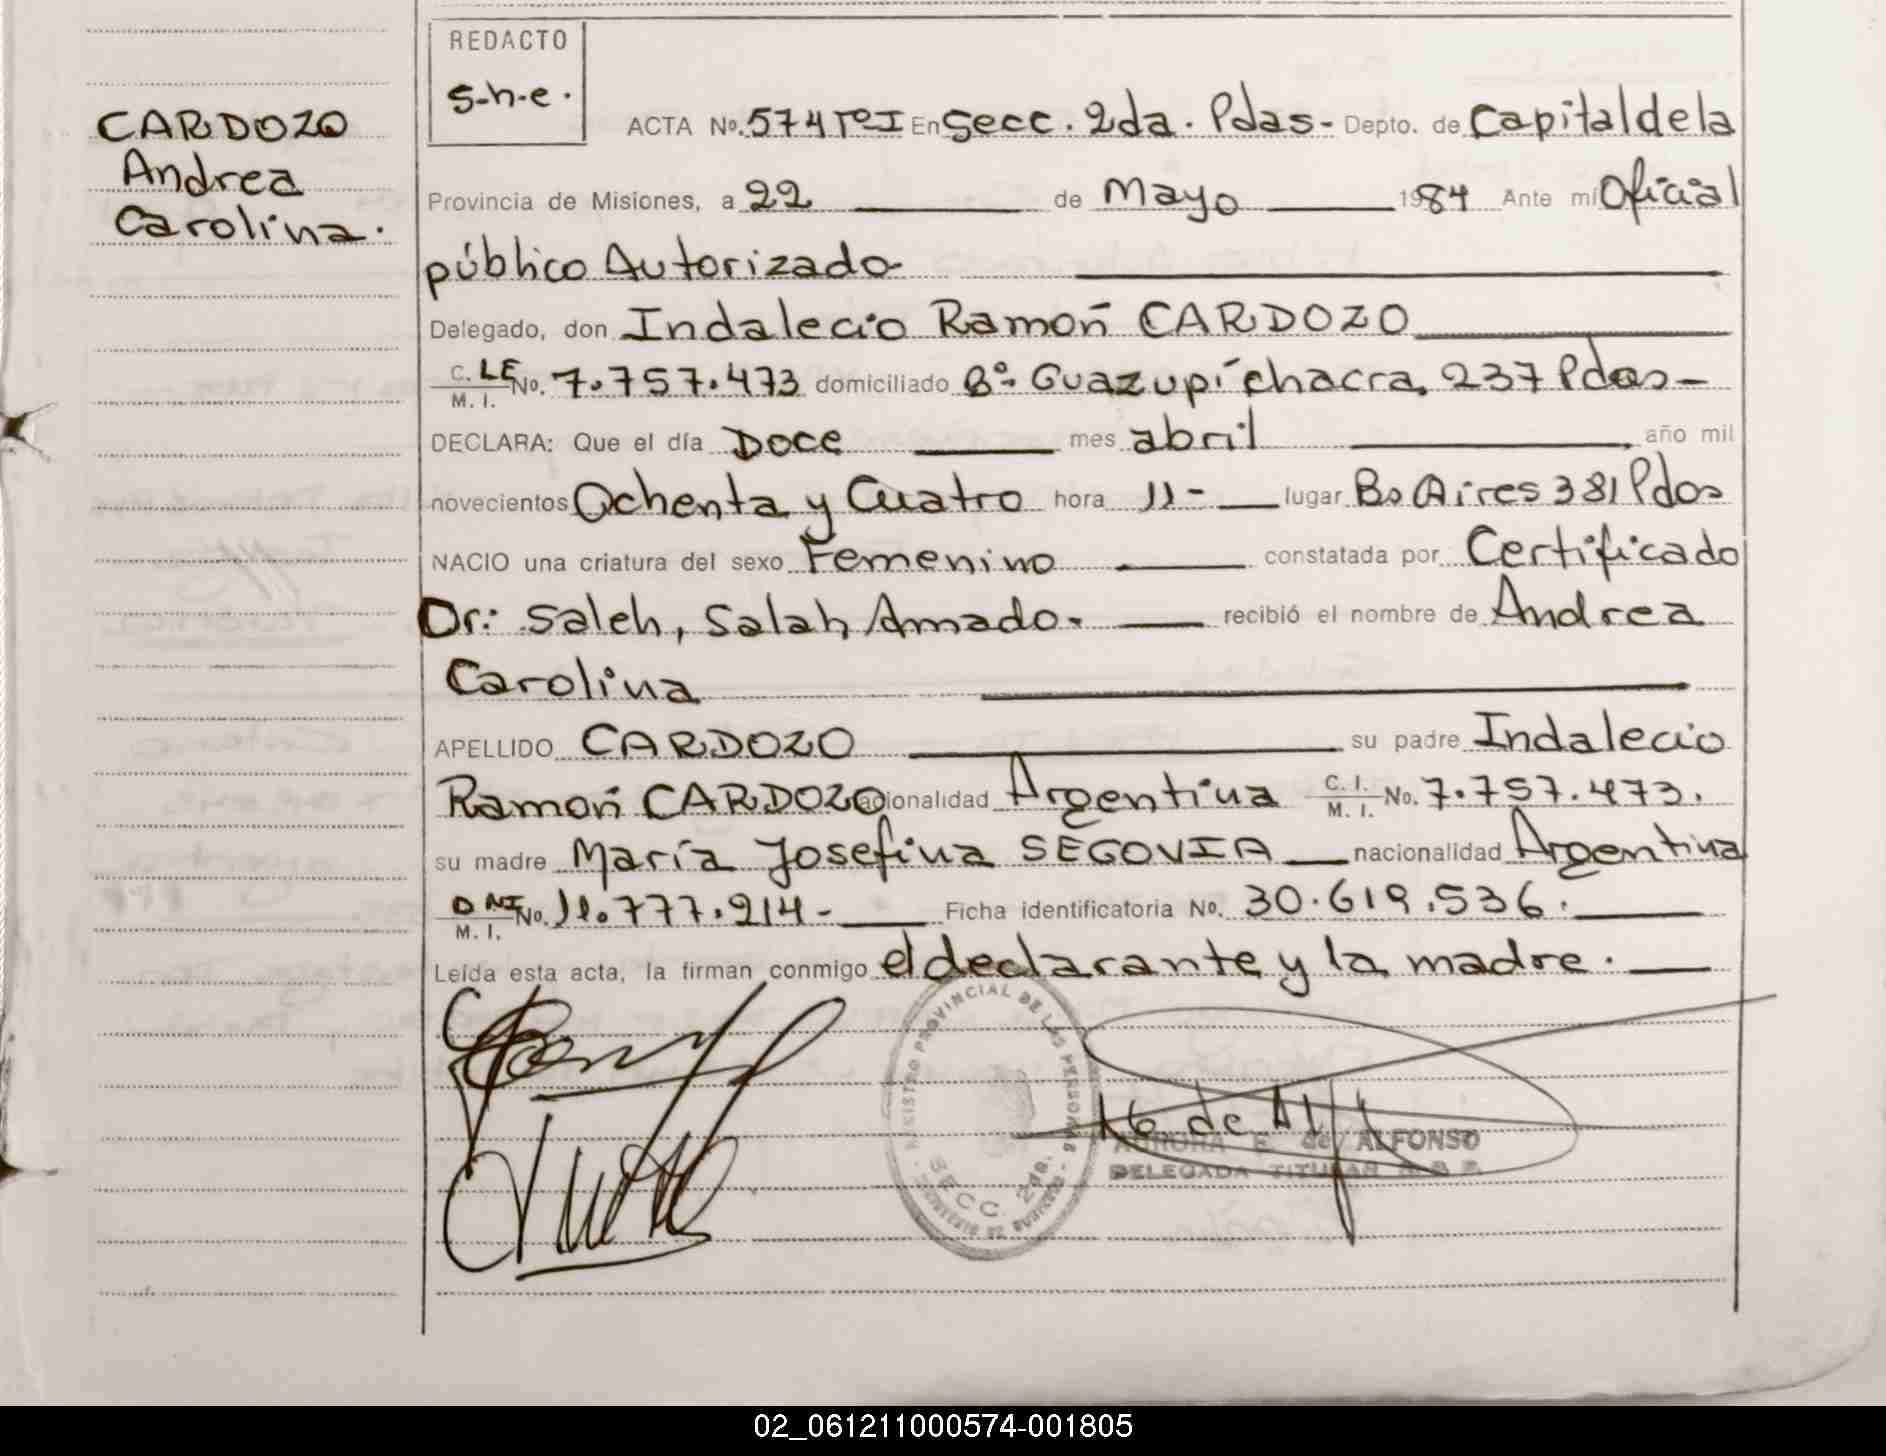 REDACTO
s-h-e.
CARDOZO
Andrea
Carolina.
ACTA No. 574 Tº I En Secc. 2da. Pdas- Depto. de Capital de la
Provincia de Misiones, a 22 de Mayo 1984 Ante mí Oficial
público Autorizado
Delegado, don Indalecio Ramón CARDOZO
C. LE M. I. No. 7.757.473 domiciliado Bº Guazupí chacra 237 Pdas-
DECLARA: Que el día Doce mes abril año mil
novecientos Ochenta y Cuatro hora 11- lugar Bs Aires 381 Pdas
NACIO una criatura del sexo Femenino constatada por Certificado
Dr: Saleh, Salah Amado. recibió el nombre de Andrea
Carolina
APELLIDO CARDOZO su padre Indalecio
Ramón CARDOZO acionalidad Argentina C. I. M. I. No. 7.757.473.
su madre María Josefina SEGOVIA nacionalidad Argentina
DNI M. I. No. 11.777.214- Ficha identificatoria No. 30.619.536.
Leída esta acta, la firman conmigo el declarante y la madre.
REGISTRO PROVINCIAL DE LAS PERSONAS
SECC. 2da.
AURORA E. de ALFONSO
DELEGADA TITULAR
02_061211000574-001805